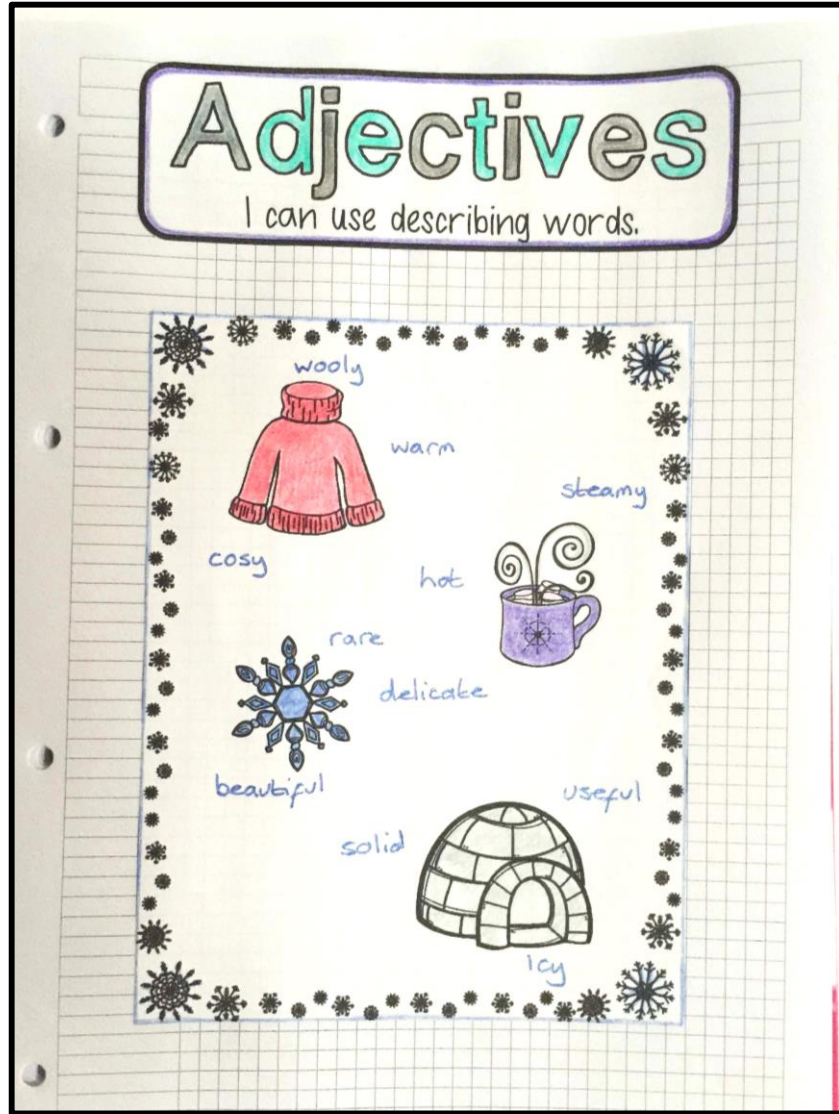 Adjectives
I can use describing words.
wooly
warm
steamy
cosy
hot
rare
delicate
beautiful
useful
solid
Icy